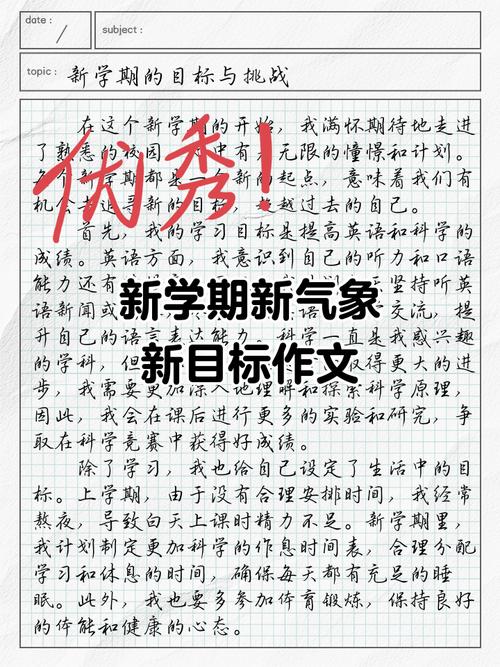 date :
subject :
topic : 新学期的目标与挑战
在这个新学期的开始，我满怀期待地走进
了熟悉的校园，心中有着无限的憧憬和计划。
每个新学期都是一个新的起点，意味着我们有
机会去追寻新的目标，超越过去的自己。
优秀！
首先，我的学习目标是提高英语和科学的
成绩。英语方面，我意识到自己的听力和口语
能力还有 坚持听英
语新闻或 交流，提
新学期新气象
升自己的语言表达能力。科学一直是我感兴趣
的学科，但 取得更大的进
新目标作文
步，我需要更加深入地理解和探索科学原理，
因此，我会在课后进行更多的实验和研究，争
取在科学竞赛中获得好成绩。
除了学习，我也给自己设定了生活中的目
标。上学期，由于没有合理安排时间，我经常
熬夜，导致白天上课时精力不足。新学期里，
我计划制定更加科学的作息时间表，合理分配
学习和休息的时间，确保每天都有充足的睡
眠。此外，我也要多参加体育锻炼，保持良好
的体能和健康的心态。